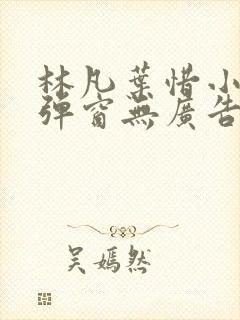 林凡葉惜小
彈窗無廣告
吳嫣然